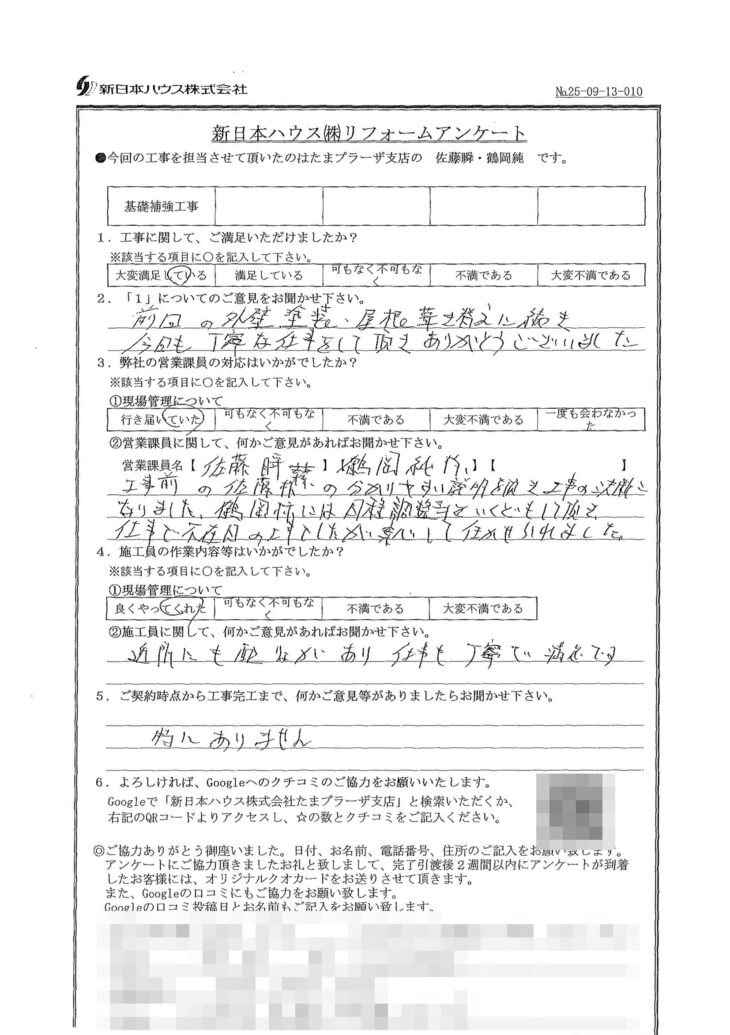 新日本ハウス株式会社
№25-09-13-010
新日本ハウス㈱リフォームアンケート
●今回の工事を担当させて頂いたのはたまプラーザ支店の 佐藤瞬・鶴岡純 です。
基礎補強工事
1．工事に関して、ご満足いただけましたか？
※該当する項目に○を記入して下さい。
大変満足している 満足している 可もなく不可もなく 不満である 大変不満である
2．「1」についてのご意見をお聞かせ下さい。
前回の外壁塗装・屋根葺き替えに続き
今回も丁寧な仕事をして頂きありがとうございました
3．弊社の営業課員の対応はいかがでしたか？
※該当する項目に○を記入して下さい。
①現場管理について
行き届いていた 可もなく不可もなく 不満である 大変不満である 一度も会わなかった
②営業課員に関して、何かご意見があればお聞かせ下さい。
営業課員名【佐藤瞬様】【鶴岡純様】【 】
工事前の佐藤様の分かりやすい説明を頂き工事の決断に
なりました、鶴岡様には日程調整等をいくどもして頂き
仕事で不在中の工事でしたが安心して任せられました。
4．施工員の作業内容等はいかがでしたか？
※該当する項目に○を記入して下さい。
①現場管理について
良くやってくれた 可もなく不可もなく 不満である 大変不満である
②施工員に関して、何かご意見があればお聞かせ下さい。
近所にも配りょがあり仕事も丁寧で満足です
5．ご契約時点から工事完工まで、何かご意見等がありましたらお聞かせ下さい。
特にありません
6．よろしければ、Googleへのクチコミのご協力をお願いいたします。
Googleで「新日本ハウス株式会社たまプラーザ支店」と検索いただくか、
右記のQRコードよりアクセスし、☆の数とクチコミをご記入ください。
◎ご協力ありがとう御座いました。日付、お名前、電話番号、住所のご記入をお願い致します。
アンケートにご協力頂きましたお礼と致しまして、完了引渡後２週間以内にアンケートが到着
したお客様には、オリジナルクオカードをお送りさせて頂きます。
また、Googleの口コミにもご協力をお願い致します。
Googleの口コミ投稿日とお名前もご記入をお願い致します。